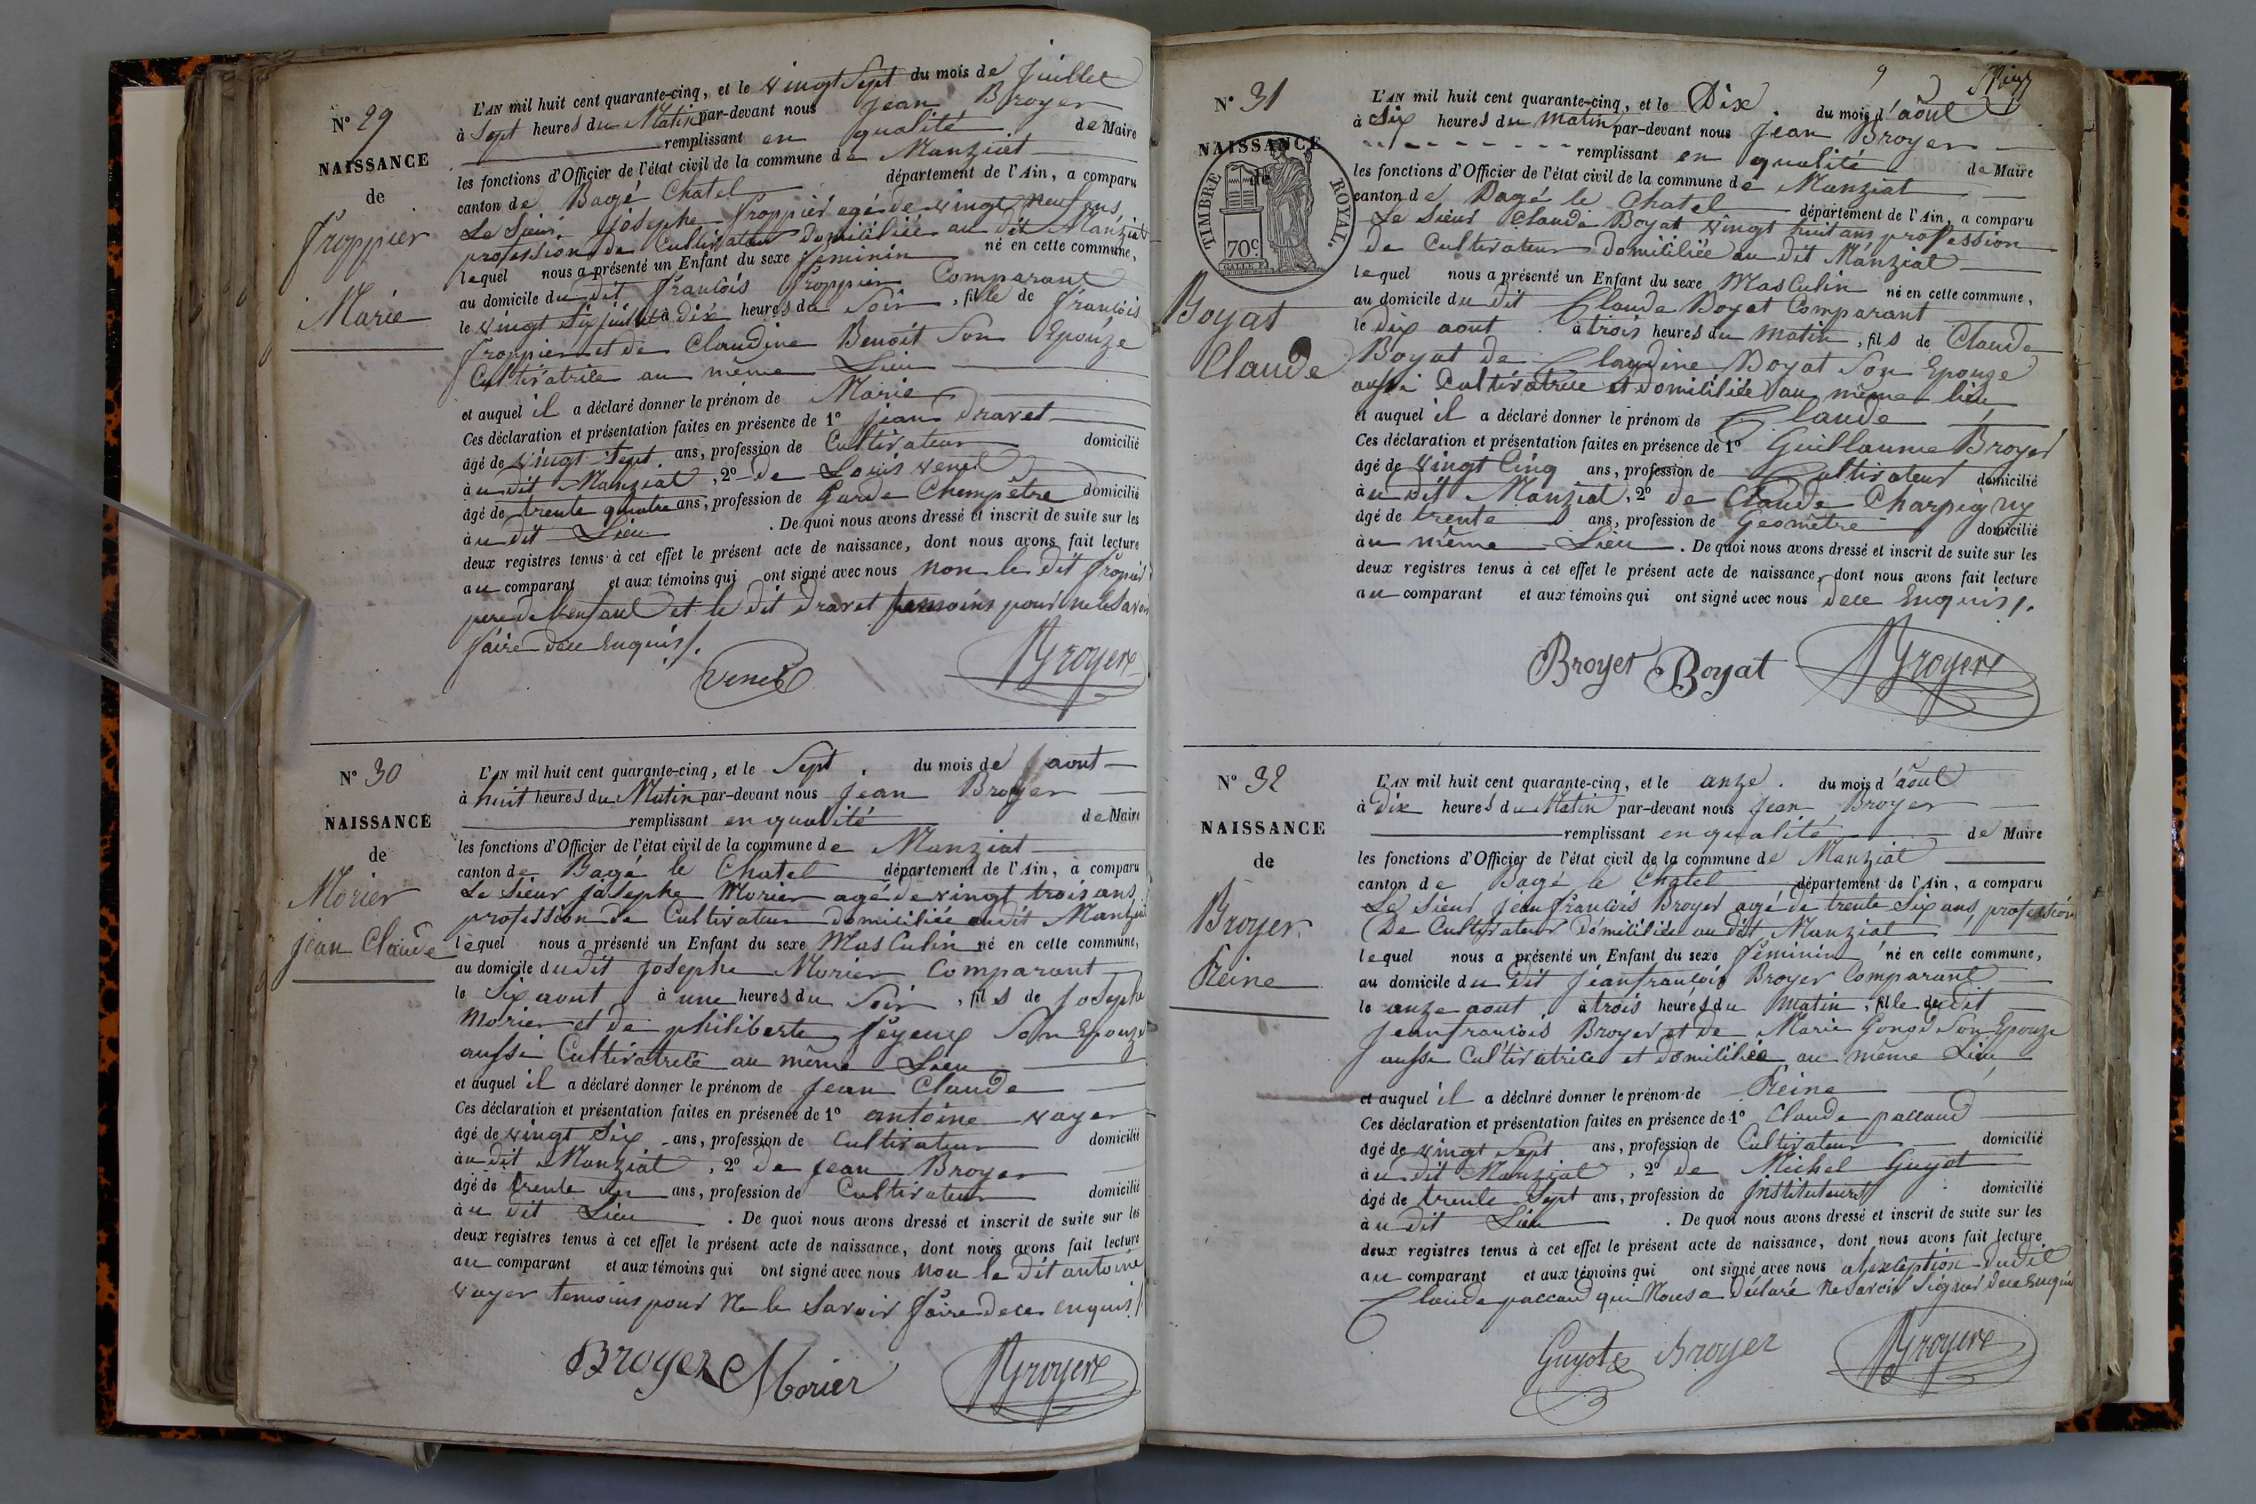 N° 29
NAISSANCE
de
froppier
Marie
L'AN mil huit cent quarante-cinq, et le vingt Sept du mois de juillet
à Sept heures du Matin par-devant nous jean Broyer
remplissant en qualité de Maire
les fonctions d'Officier de l'état civil de la commune de Manziat
canton de Bagé Chatel département de l'Ain, a comparu
Le Sieur josephe froppier agé de vingt neuf ans
profession de Cultivateur domiciliée au dit Manziat
lequel nous a présenté un Enfant du sexe feminin né en cette commune,
au domicile du dit francois froppier Comparant
le vingt Six juillet à dix heures du Soir, fille de francois
froppier et de Claudine Benoit Son Epouze
Cultivatrice au même Lieu
et auquel il a déclaré donner le prénom de Marie
Ces déclaration et présentation faites en présence de 1° jean dravet
âgé de vingt Sept ans, profession de Cultivateur domicilié
à u dit Manziat, 2° de Louis venet
âgé de trente quatre ans, profession de Garde Champêtre domicilié
à u dit Lieu. De quoi nous avons dressé et inscrit de suite sur les
deux registres tenus à cet effet le présent acte de naissance, dont nous avons fait lecture
au comparant et aux témoins qui ont signé avec nous non le dit fropier
pere de lenfant et le dit dravet temoins pour ne le Savoir
faire dece Enquis /.
Venet Broyer
N° 30
NAISSANCE
de
Morier
jean Claude
L'AN mil huit cent quarante-cinq, et le Sept. du mois de aout
à huit heures du Matin par-devant nous jean Broyer
remplissant en qualité de Maire
les fonctions d'Officier de l'état civil de la commune de Manziat
canton de Bagé le Chatel département de l'Ain, a comparu
Le Sieur josephe Morier agé de vingt trois ans
profession de Cultivateur domiciliée au dit Manziat
lequel nous a présenté un Enfant du sexe MasCulin né en cette commune,
au domicile du dit josephe Morier Comparant
le Six aout à une heures du Soir, fils de josephe
Morier et de philiberte feyeux Son Epouze
aussi Cultivatrice au même Lieu
et auquel il a déclaré donner le prénom de jean Claude
Ces déclaration et présentation faites en présence de 1° antoine vayer
âgé de vingt Six ans, profession de Cultivateur domicilié
à u dit Manziat, 2° de jean Broyer
âgé de trente ans, profession de Cultivateur domicilié
à u dit Lieu. De quoi nous avons dressé et inscrit de suite sur les
deux registres tenus à cet effet le présent acte de naissance, dont nous avons fait lecture
au comparant et aux témoins qui ont signé avec nous non le dit antoine
vayer temoins pour ne le Savoir faire dece enquis /.
Broyer Morier Broyer
9
N° 31
NAISSANCE
de
TIMBRE ROYAL.
70c
Boyat
Claude
L'AN mil huit cent quarante-cinq, et le Dix. du mois d'août
à Six heures du matin par-devant nous jean Broyer
remplissant en qualité de Maire
les fonctions d'Officier de l'état civil de la commune de Manziat
canton de Bagé le Chatel département de l'Ain, a comparu
Le Sieur Claude Boyat vingt huit ans profession
de Cultivateur domiciliée au dit Manziat
lequel nous a présenté un Enfant du sexe MasCulin né en cette commune,
au domicile du dit Claude Boyat Comparant
le dix aout à trois heures du matin, fils de Claude
Boyat de Claudine Boyat Son Epouze
aussi Cultivatrice et domiciliée au même lieu
et auquel il a déclaré donner le prénom de Claude
Ces déclaration et présentation faites en présence de 1° Guillaume Broyer
âgé de vingt Cinq ans, profession de Cultivateur domicilié
à u dit Manziat, 2° de Claude Charpigny
âgé de trente ans, profession de Geomêtre domicilié
à u même Lieu. De quoi nous avons dressé et inscrit de suite sur les
deux registres tenus à cet effet le présent acte de naissance, dont nous avons fait lecture
au comparant et aux témoins qui ont signé avec nous dece Enquis /.
Broyer Boyat Broyer
N° 32
NAISSANCE
de
Broyer
Reine
L'AN mil huit cent quarante-cinq, et le onze. du mois d'août
à dix heures du Matin par-devant nous jean Broyer
remplissant en qualité de Maire
les fonctions d'Officier de l'état civil de la commune de Manziat
canton de Bagé le Chatel département de l'Ain, a comparu
Le Sieur jean francois Broyer agé de trente Six ans, profession
De Cultivateur domiciliée au dit Manziat
lequel nous a présenté un Enfant du sexe feminin né en cette commune,
au domicile du dit jean francois Broyer Comparant
le onze aout à trois heures du matin, fille du dit
jean francois Broyer et de Marie Gonod Son Epouze
aussi Cultivatrice et domiciliée au même Lieu
et auquel il a déclaré donner le prénom de Reine
Ces déclaration et présentation faites en présence de 1° Claude paccaud
âgé de vingt Sept ans, profession de Cultivateur domicilié
à u dit Manziat, 2° de Michel Guyot
âgé de trente Sept ans, profession de jnstituteur domicilié
à u dit Lieu. De quoi nous avons dressé et inscrit de suite sur les
deux registres tenus à cet effet le présent acte de naissance, dont nous avons fait lecture
au comparant et aux témoins qui ont signé avec nous alexception dudit
Claude paccaud qui Nous a déclaré ne Savoir Signer dece Enquis
Guyot Broyer Broyer